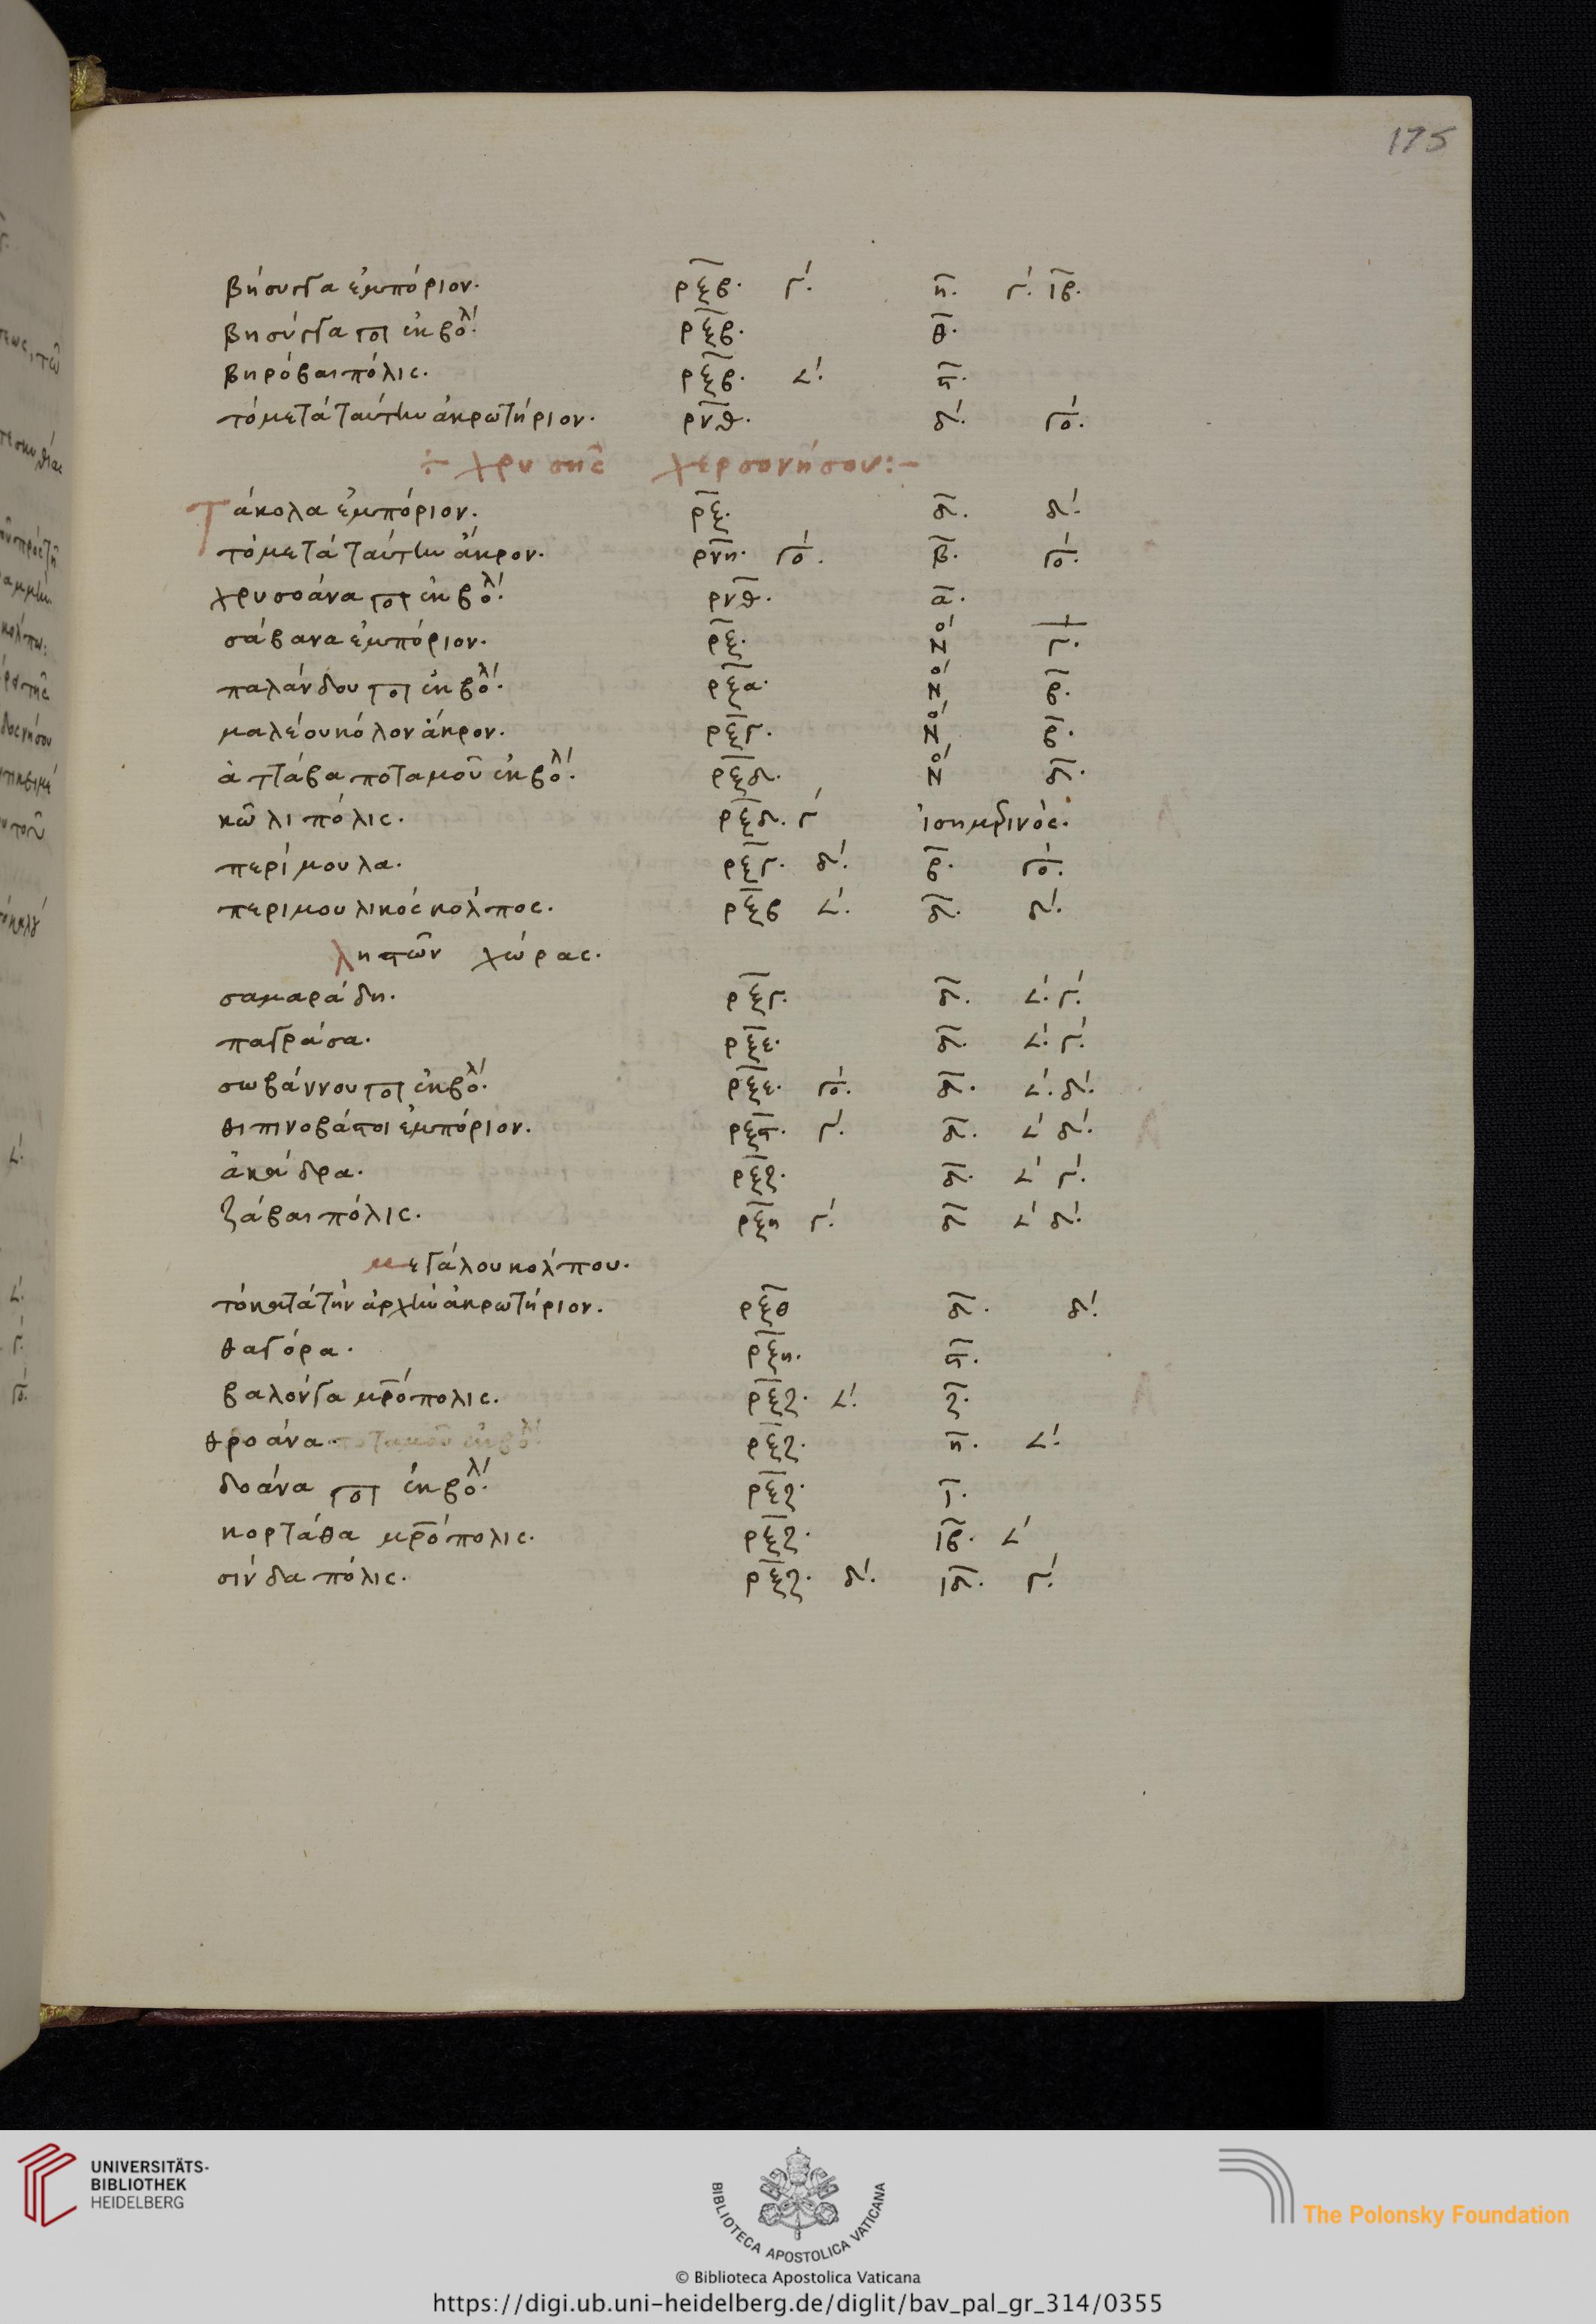 175
βήσυγγα ἐμπόριον. ρξβ. γ΄. η. γ΄. ιβ.
βησύγγα ποτ ἐκβολ΄. ρξβ. θ.
βηρόβαι πόλις. ρξβ. 𐅵΄. ϛ.
τὸ μετὰ ταύτην ἀκρωτήριον. ρνθ. δ΄. γο΄.
÷ χρυσῆς χερσονήσου:-
Τάκολα ἐμπόριον. ρξ. δ. δ΄.
τὸ μετὰ ταύτην ἄκρον. ρνη. γο΄. β. γο΄.
χρυσοάνα ποτ ἐκβολ΄. ρνθ. α.
σάβανα ἐμπόριον. ρξ. Νο΄ γ.
παλάνδου ποτ ἐκβολ΄. ρξα. Νο΄ β.
μαλέου κόλον ἄκρον. ρξγ. Νο΄ β.
ἀττάβα ποταμοῦ ἐκβολ΄. ρξδ. Νο΄ δ.
κῶλι πόλις. ρξδ. γ΄ ἰσημρινός.
περίμουλα. ρξγ. δ΄. β. γο΄.
περιμουλικὸς κόλπος. ρξβ 𐅵΄. δ. δ΄.
λῃστῶν χώρας.
σαμαράδη. ρξγ. δ. 𐅵΄. γ΄.
παγράσα. ρξε. δ. 𐅵΄. γ΄.
σωβάννου ποτ ἐκβολ΄. ρξε. γο΄. δ. 𐅵΄. δ΄.
θιπινοβάστοι ἐμπόριον. ρξϛ. γ΄. δ. 𐅵΄ δ΄.
ἀκάδρα. ρξζ. δ. 𐅵΄ γ΄.
ζάβαι πόλις. ρξη γ΄. δ 𐅵΄ δ΄.
μεγάλου κόλπου.
τὸ κατὰ τὴν ἀρχὴν ἀκρωτήριον. ρξθ δ. δ΄.
θαγόρα. ρξη. ϛ.
βαλόνγα μρόπολις. ρξζ. 𐅵΄. ζ.
θροάνα. ποταμοῦ ἐκβολ΄. ρξζ. η. 𐅵΄.
δοάνα ποτ ἐκβολ΄. ρξζ. ι.
κορτάθα μρόπολις. ρξζ. ιβ. 𐅵΄
σίνδα πόλις. ρξζ. δ΄. ιδ. γ΄.
UNIVERSITÄTS-
BIBLIOTHEK
HEIDELBERG
BIBLIOTECA APOSTOLICA VATICANA
The Polonsky Foundation
© Biblioteca Apostolica Vaticana
https://digi.ub.uni-heidelberg.de/diglit/bav_pal_gr_314/0355